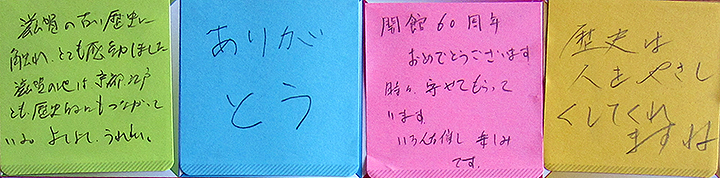 滋賀の古い歴史に
触れ、とても感動しました
滋賀の地は京都、江戸
とも歴史的にもつながって
いる。 うれしい。
ありが
とう
開館60周年
おめでとうございます
時々、寄せてもらって
います。
いろんな催し 楽しみ
です。
歴史は
人をやさし
くしてくれ
ますね